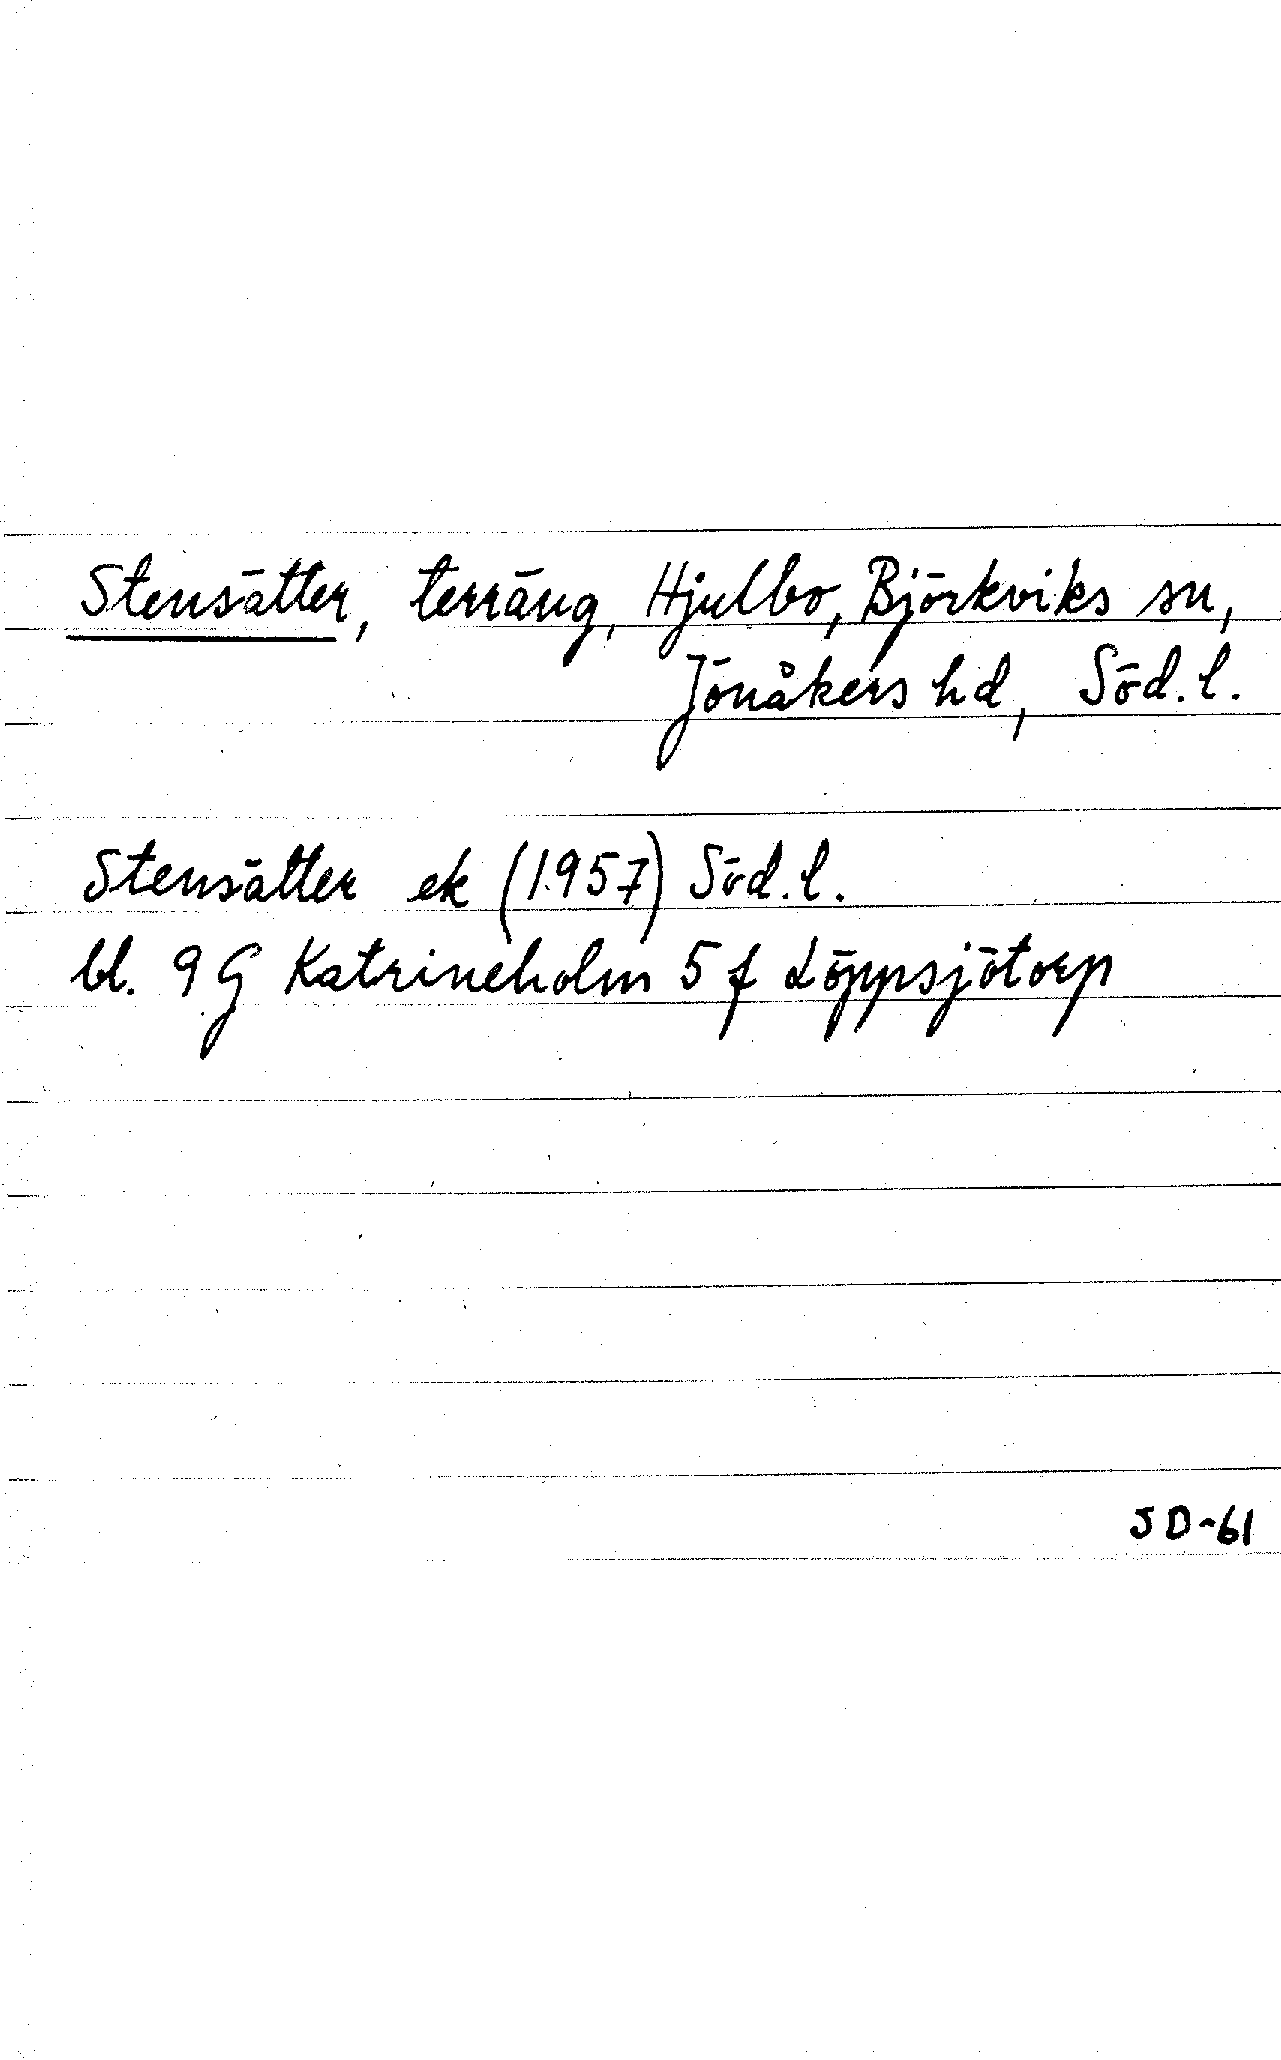 Stensätter, terräng, Hjulbo, Björkviks sn,
Jönåkers hd, Söd. l.
Stensätter ek (1957) Söd. l.
bl. 9 G Katrineholm 5 f Löppsjötorp
SD-61